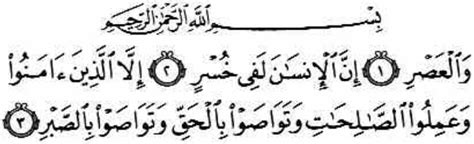 بِسْمِ اللَّهِ الرَّحْمَٰنِ الرَّحِيمِ
وَالْعَصْرِ ١ إِنَّ الْإِنسَانَ لَفِي خُسْرٍ ٢ إِلَّا الَّذِينَ ءَامَنُوا
وَعَمِلُوا الصَّالِحَاتِ وَتَوَاصَوْا بِالْحَقِّ وَتَوَاصَوْا بِالصَّبْرِ ٣